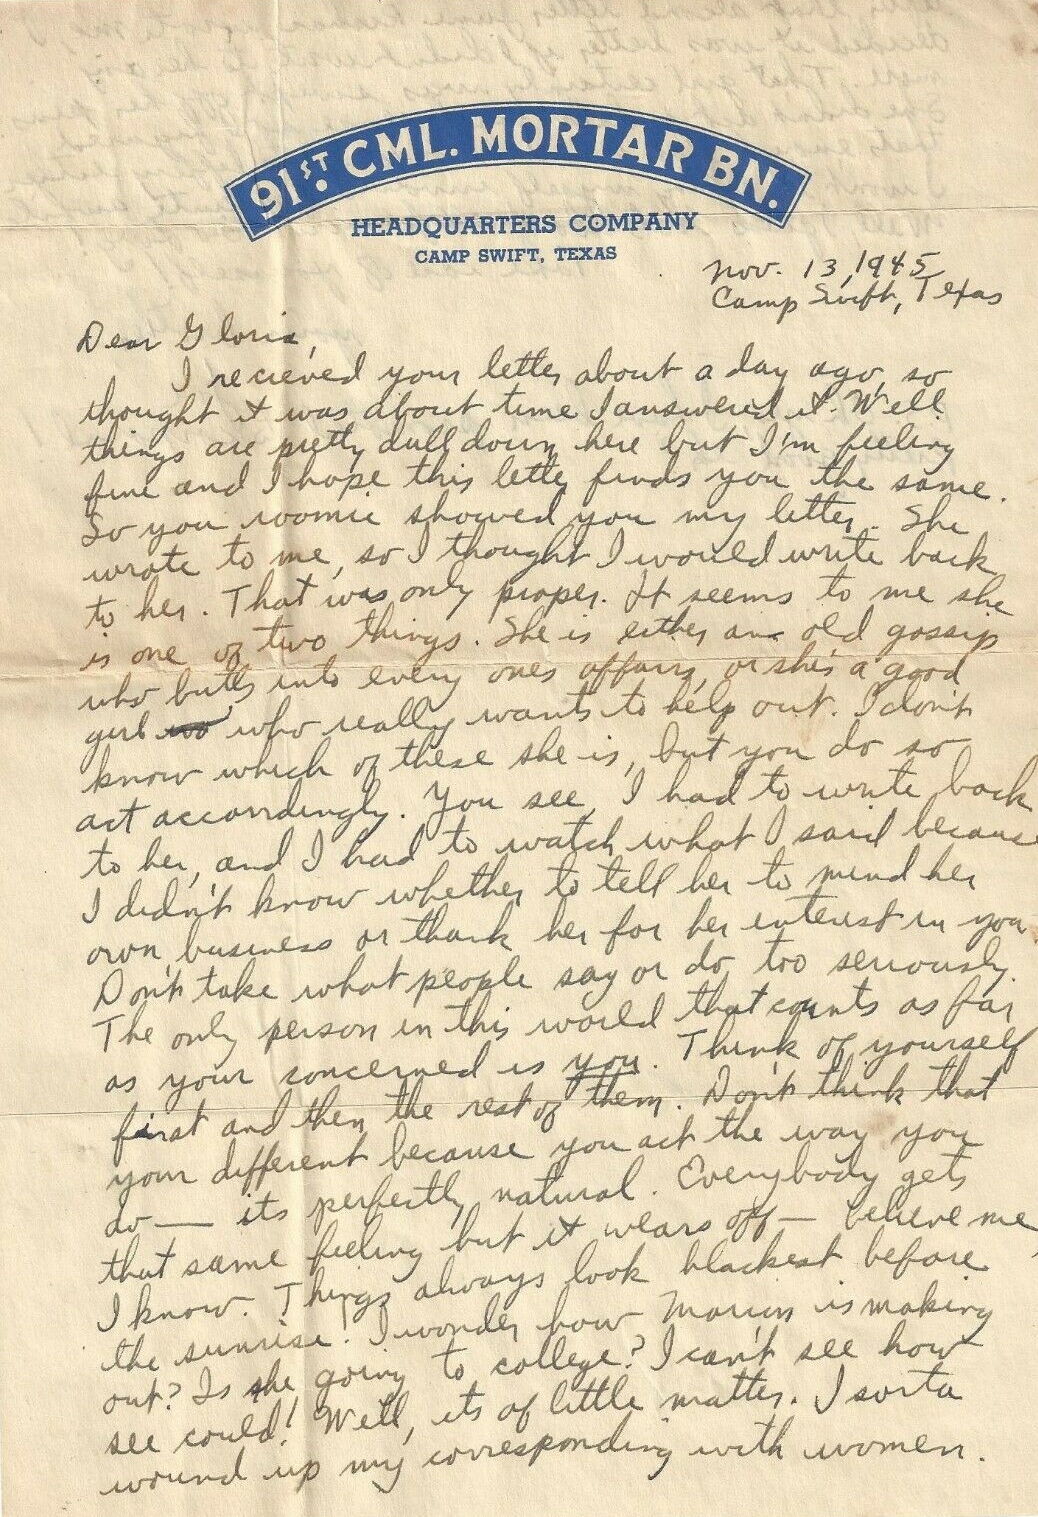 91ST. CML. MORTAR BN.
HEADQUARTERS COMPANY
CAMP SWIFT, TEXAS
Nov. 13, 1945
Camp Swift, Texas
Dear Gloria,
I recieved your letter about a day ago, so
thought it was about time I answered it. Well
things are pretty dull down here but I'm feeling
fine and I hope this letter finds you the same.
So you roomie showed you my letter. She
wrote to me, so I thought I would write back
to her. That was only proper. It seems to me she
is one of two things. She is either an old gossip
who butts into every ones affairs, or she's a good
girl who really wants to help out. I don't
know which of these she is, but you do so
act accordingly. You see, I had to write back
to her, and I had to watch what I said because
I didn't know whether to tell her to mind her
own business or thank her for her interest in you.
Don't take what people say or do too seriously.
The only person in this world that counts as far
as your concerned is you. Think of yourself
first and then the rest of them. Don't think that
your different because you act the way you
do — its perfectly natural. Everybody gets
that same feeling but it wears off — believe me
I know. Things always look blackest before
the sunrise! I wonder how Marion is making
out? Is she going to college? I can't see how
see could! Well, its of little matter. I sorta
wound up my corresponding with women.